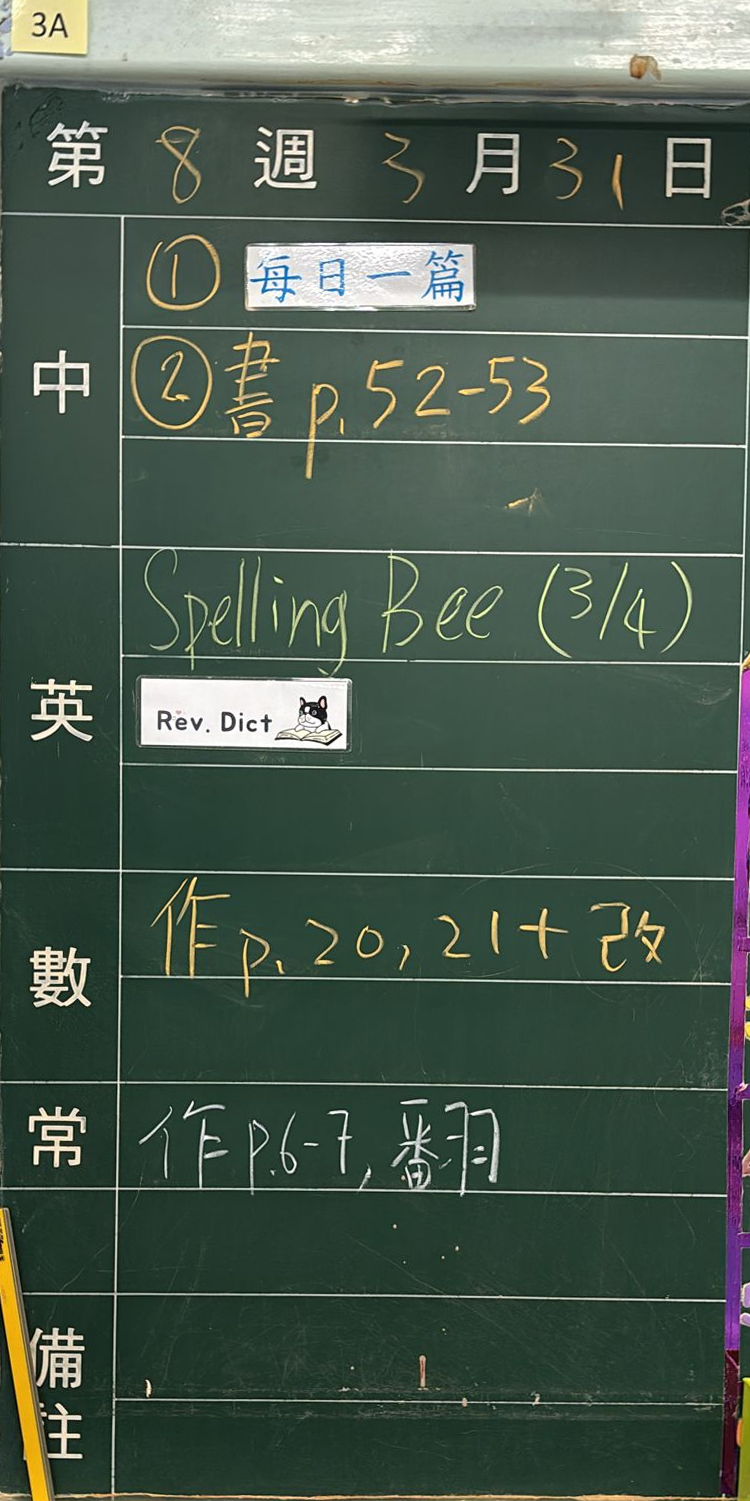 3A
第 8 週 3 月 31 日
中
① 每日一篇
② 書 p. 52-53
英
Spelling Bee (3/4)
Rev. Dict
數
作 p. 20, 21 + 改
常
作 p.6-7, 翻
備註